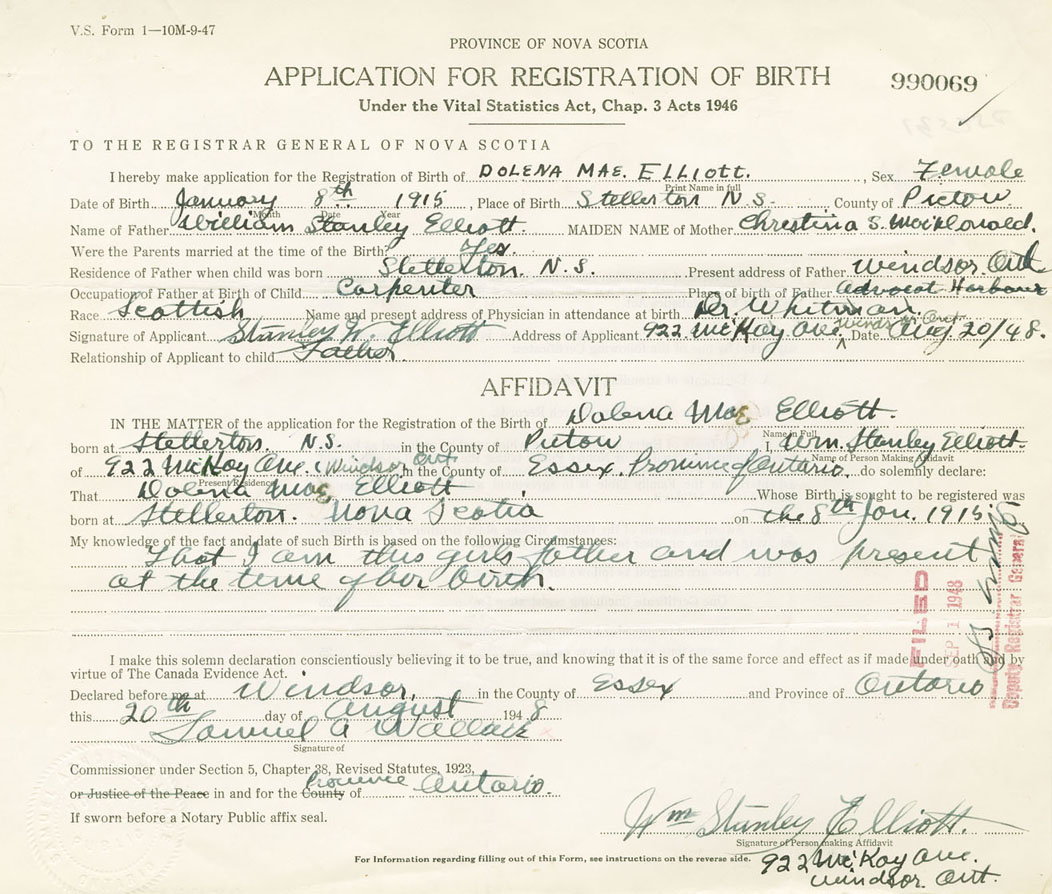 V.S. Form 1—10M-9-47
PROVINCE OF NOVA SCOTIA
APPLICATION FOR REGISTRATION OF BIRTH
990069
Under the Vital Statistics Act, Chap. 3 Acts 1946
TO THE REGISTRAR GENERAL OF NOVA SCOTIA
I hereby make application for the Registration of Birth of DOLENA MAE. ELLIOTT. , Sex Female
Print Name in full
Date of Birth January 8th 1915 , Place of Birth Stellerton N.S. County of Pictou
Month Date Year
Name of Father William Stanley Elliott. MAIDEN NAME of Mother Chrestina S. MacDonald.
Were the Parents married at the time of the Birth? Yes.
Residence of Father when child was born Stellerton. N.S. Present address of Father Windsor. Ont
Occupation of Father at Birth of Child Carpenter Place of birth of Father Advocat Harbour
Race Scottish Name and present address of Physician in attendance at birth Dr. Whitman.
Signature of Applicant Stanley W. Elliott Address of Applicant 922 McKay Ave Windsor Ont. Date Aug 20/48.
Relationship of Applicant to child Father
AFFIDAVIT
IN THE MATTER of the application for the Registration of Birth of Dolena Mae Elliott.
Name in Full
born at Stellerton. N.S. in the County of Pictou I, Wm. Stanley Elliott.
Name of Person Making Affidavit
of 922 McKay Ave. (Windsor Ont in the County of Essex. Province of Ontario. do solemnly declare:
Present Residence
That Dolena Mae Elliott Whose Birth is sought to be registered was
born at Stellerton. Nova Scotia on the 8th Jan. 1915.
My knowledge of the fact and date of such Birth is based on the following Circumstances:
That I am this girls father and was present
at the time of her birth.
FILED
SEP 1 1948
Deputy Registrar General
I make this solemn declaration conscientiously believing it to be true, and knowing that it is of the same force and effect as if made under oath and by
virtue of The Canada Evidence Act.
Declared before me at Windsor, in the County of Essex and Province of Ontario
this 20th day of August 1948
Samuel A Wallace
Signature of
Commissioner under Section 5, Chapter 38, Revised Statutes, 1923,
or Justice of the Peace in and for the County Province of Ontario.
If sworn before a Notary Public affix seal.
Wm Stanley Elliott.
Signature of Person making Affidavit
For Information regarding filling out of this Form, see instructions on the reverse side.
922 McKay Ave.
Windsor. Ont.